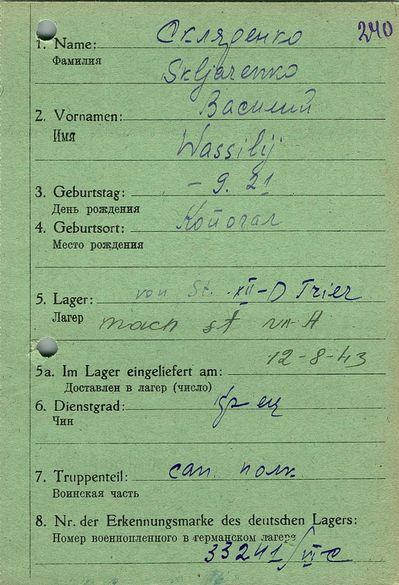 240
1. Name: Скляренко
Фамилия Skljarenko
2. Vornamen: Василий
Имя Wassilij
3. Geburtstag: – 9. 21
День рождения
4. Geburtsort:
Место рождения
5. Lager: von St. XII-D Trier
Лагер nach St VII-A
5a. Im Lager eingeliefert am: 12-8-43
Доставлен в лагер (число)
6. Dienstgrad:
Чин
7. Truppenteil: сап. полк
Воинская часть
8. Nr. der Erkennungsmarke des deutschen Lagers:
Номер военнопленного в германском лагере
33241/VI-C